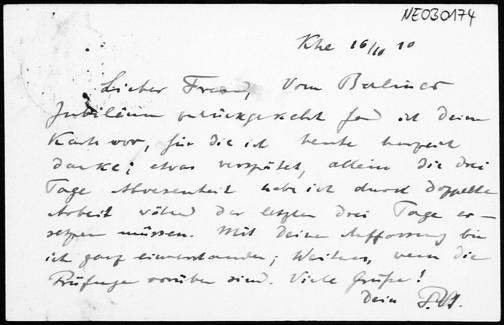 NE030174
Khe 16/10 10
Lieber Freund, Vom Berliner
Jubiläum zurückgekehrt fand ich Deine
Karte vor, für die ich heute herzlich
danke; etwas verspätet, allein die drei
Tage Abwesenheit habe ich durch doppelte
Arbeit der letzten drei Tage er-
setzen müssen. Mit Deiner Auffassung bin
ich ganz einverstanden; Weiteres, wenn die
Prüfungen vorüber sind. Viele Grüße!
Dein